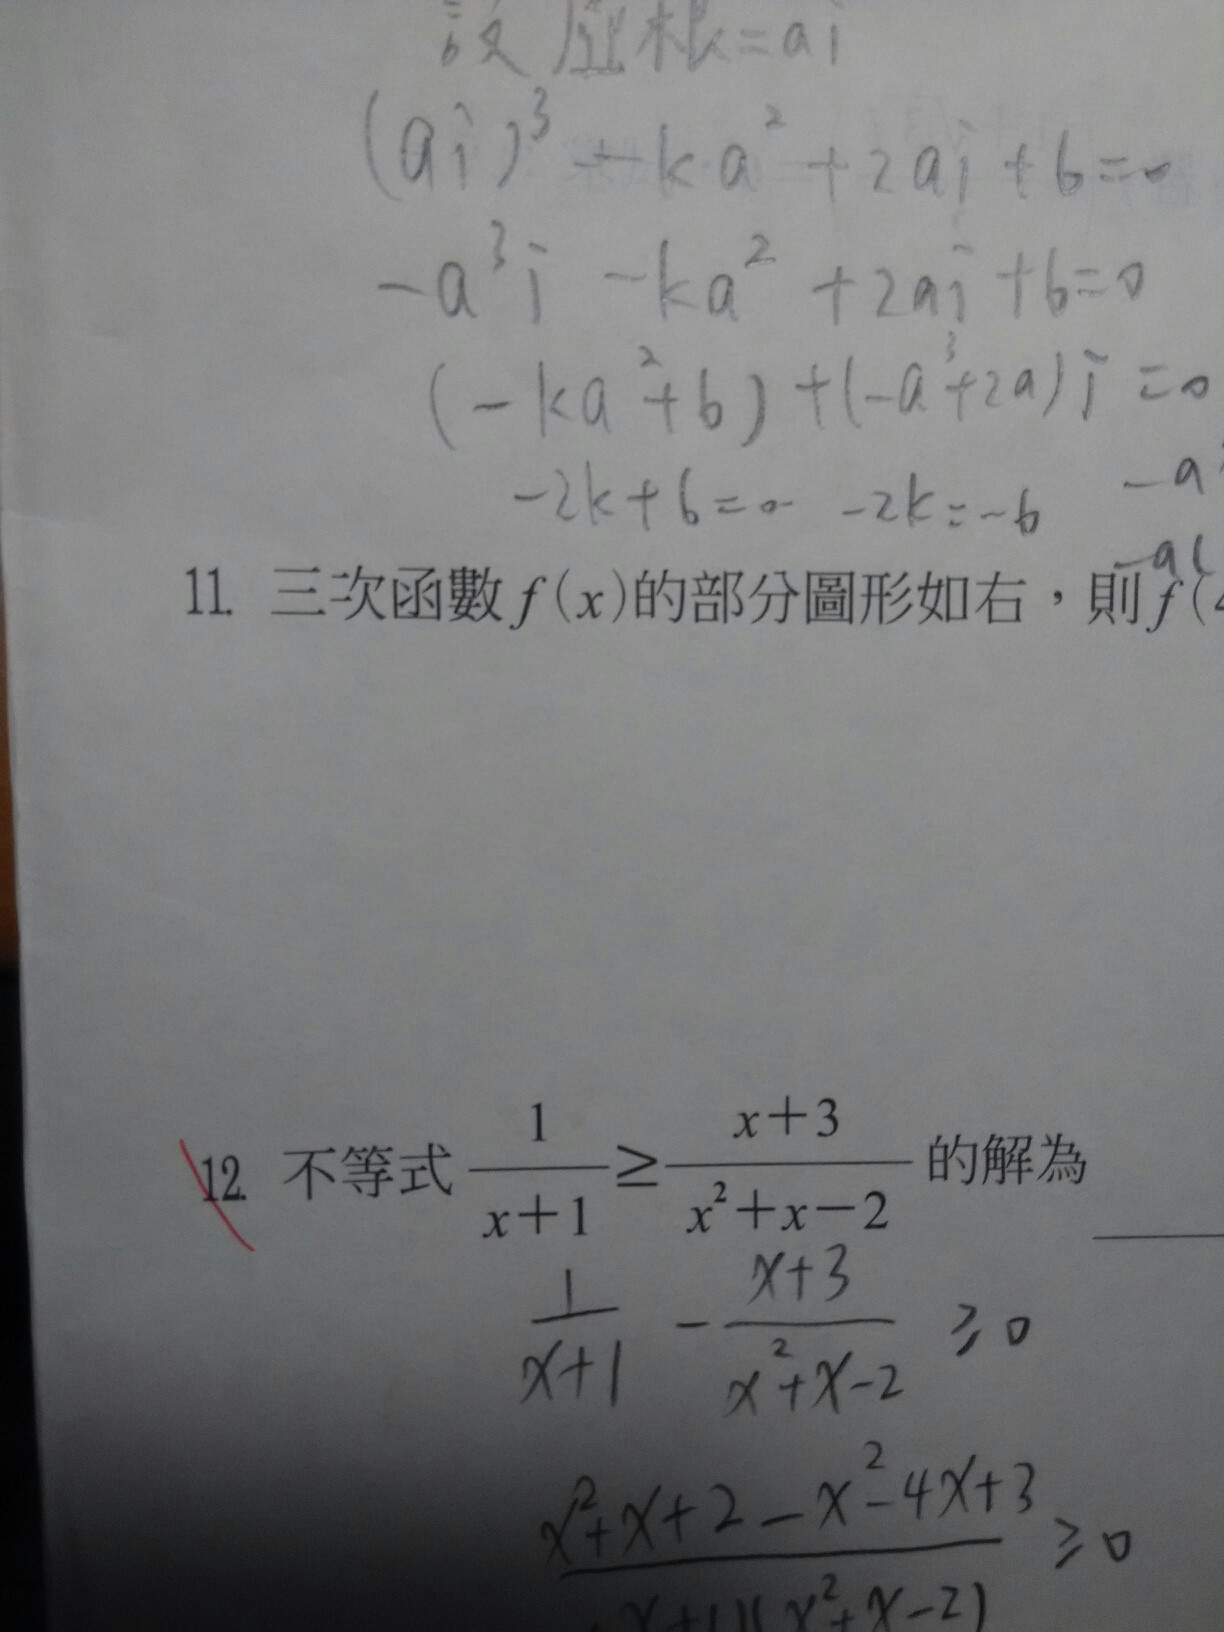 設虛根=ai
(ai)³ - ka² + 2ai + b = 0
-a³i - ka² + 2ai + b = 0
(-ka² + b) + (-a³ + 2a)i = 0
-2k + 6 = 0 -2k = -6
-a
11. 三次函數 f(x)的部分圖形如右,則 f(
12. 不等式 1/(x+1) ≥ (x+3)/(x²+x-2) 的解為
1/(x+1) - (x+3)/(x²+x-2) ≥ 0
(x²+x+2-x²-4x+3)/((x+1)(x²+x-2)) ≥ 0